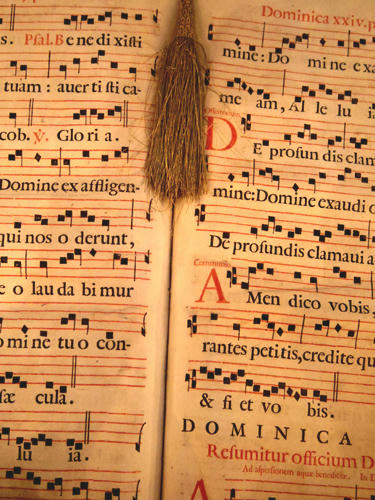 s. Psal. Be ne di xisti
tuam : auer ti sti ca-
cob. ℣. Glo ri a.
Domine ex affligen-
qui nos o derunt,
e o lau da bi mur
o mi ne tu o con-
sæ cula.
lu ia.
Dominica xxiv. p
mine : Do mi ne exa
me am, Al le lu
DE profun dis clam
mine: Domine exaudi o
De profundis clamaui a
Communio
AMen dico vobis,
rantes petitis, credite qu
& fi et vo bis.
DOMINICA
Resumitur officium D
Ad aspersionem aquæ benedictæ. In D